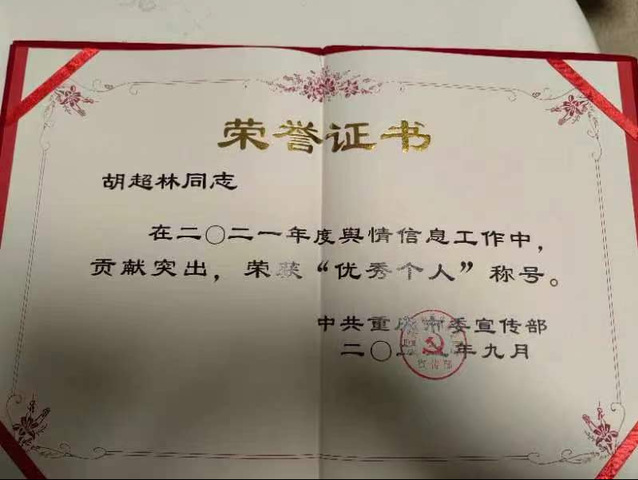 荣誉证书
胡超林同志
在二〇二一年度舆情信息工作中，
贡献突出，荣获“优秀个人”称号。
中共重庆市委宣传部
二〇二 年九月
宣传部